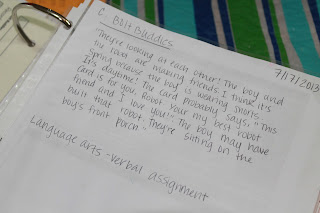 C. Bolt Buddies
7/17/2013
They're looking at each other. The boy and
his robot are amazing friends. I think it's
Spring because the boy is wearing shorts.
It's daytime! The card probably says, "This
card is for you, Robot. Your my best robot
friend and I love you!" The boy may have
built that robot. They're sitting on the
boy's front porch."
Language arts - verbal assignment